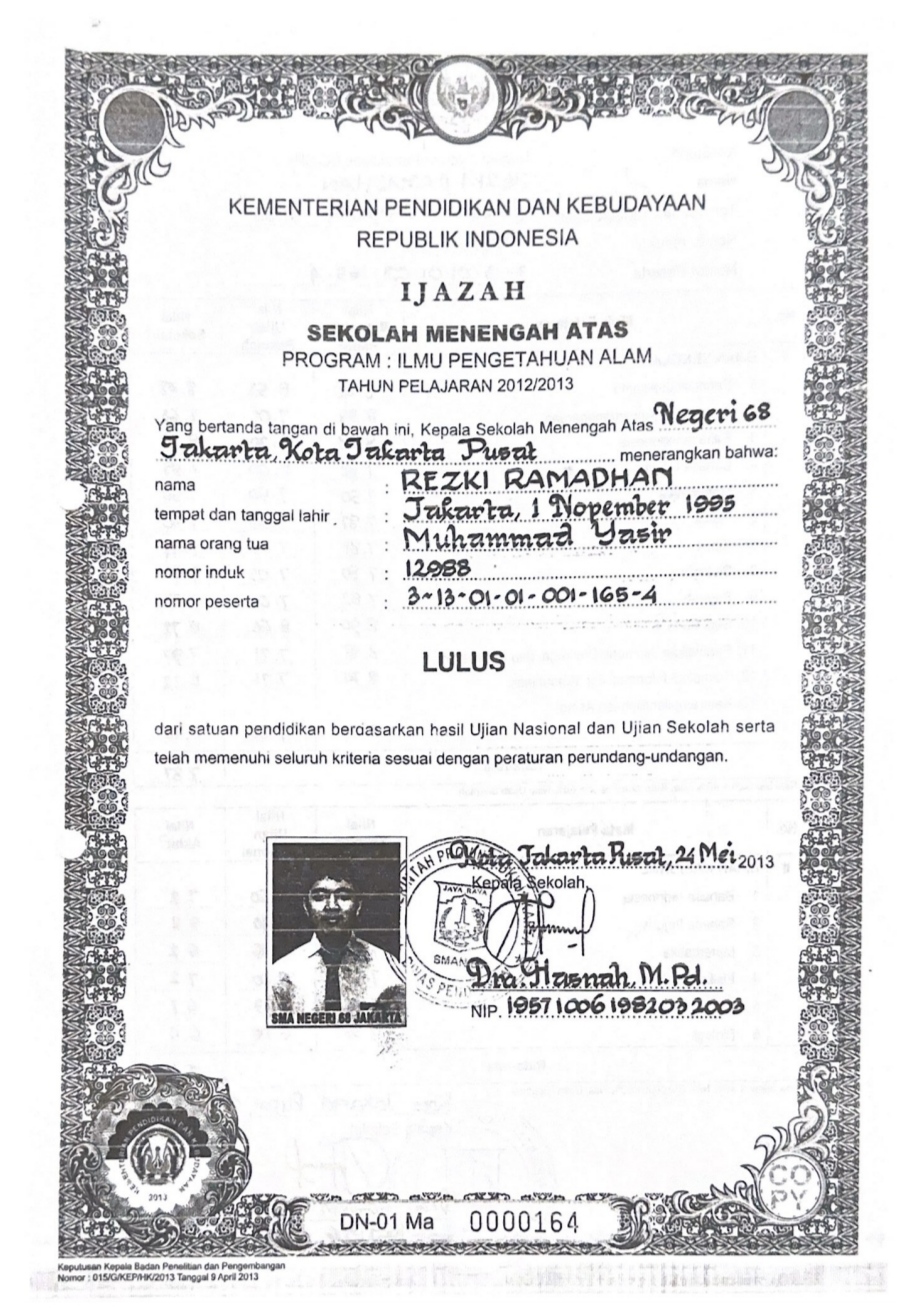 KEMENTERIAN PENDIDIKAN DAN KEBUDAYAAN
REPUBLIK INDONESIA
IJAZAH
SEKOLAH MENENGAH ATAS
PROGRAM : ILMU PENGETAHUAN ALAM
TAHUN PELAJARAN 2012/2013
Yang bertanda tangan di bawah ini, Kepala Sekolah Menengah Atas Negeri 68
Jakarta, Kota Jakarta Pusat menerangkan bahwa:
nama : REZKI RAMADHAN
tempat dan tanggal lahir : Jakarta, 1 Nopember 1995
nama orang tua : Muhammad Yasir
nomor induk : 12988
nomor peserta : 3-13-01-01-001-165-4
LULUS
dari satuan pendidikan berdasarkan hasil Ujian Nasional dan Ujian Sekolah serta
telah memenuhi seluruh kriteria sesuai dengan peraturan perundang-undangan.
Kota Jakarta Pusat, 24 Mei 2013
Kepala Sekolah,
JAYA RAYA
SMAN
Dra. Hasnah, M.Pd.
NIP. 195710061982032003
SMA NEGERI 68 JAKARTA
2013
COPY
DN-01 Ma 0000164
Keputusan Kepala Badan Penelitian dan Pengembangan
Nomor : 015/G/KEP/HK/2013 Tanggal 9 April 2013